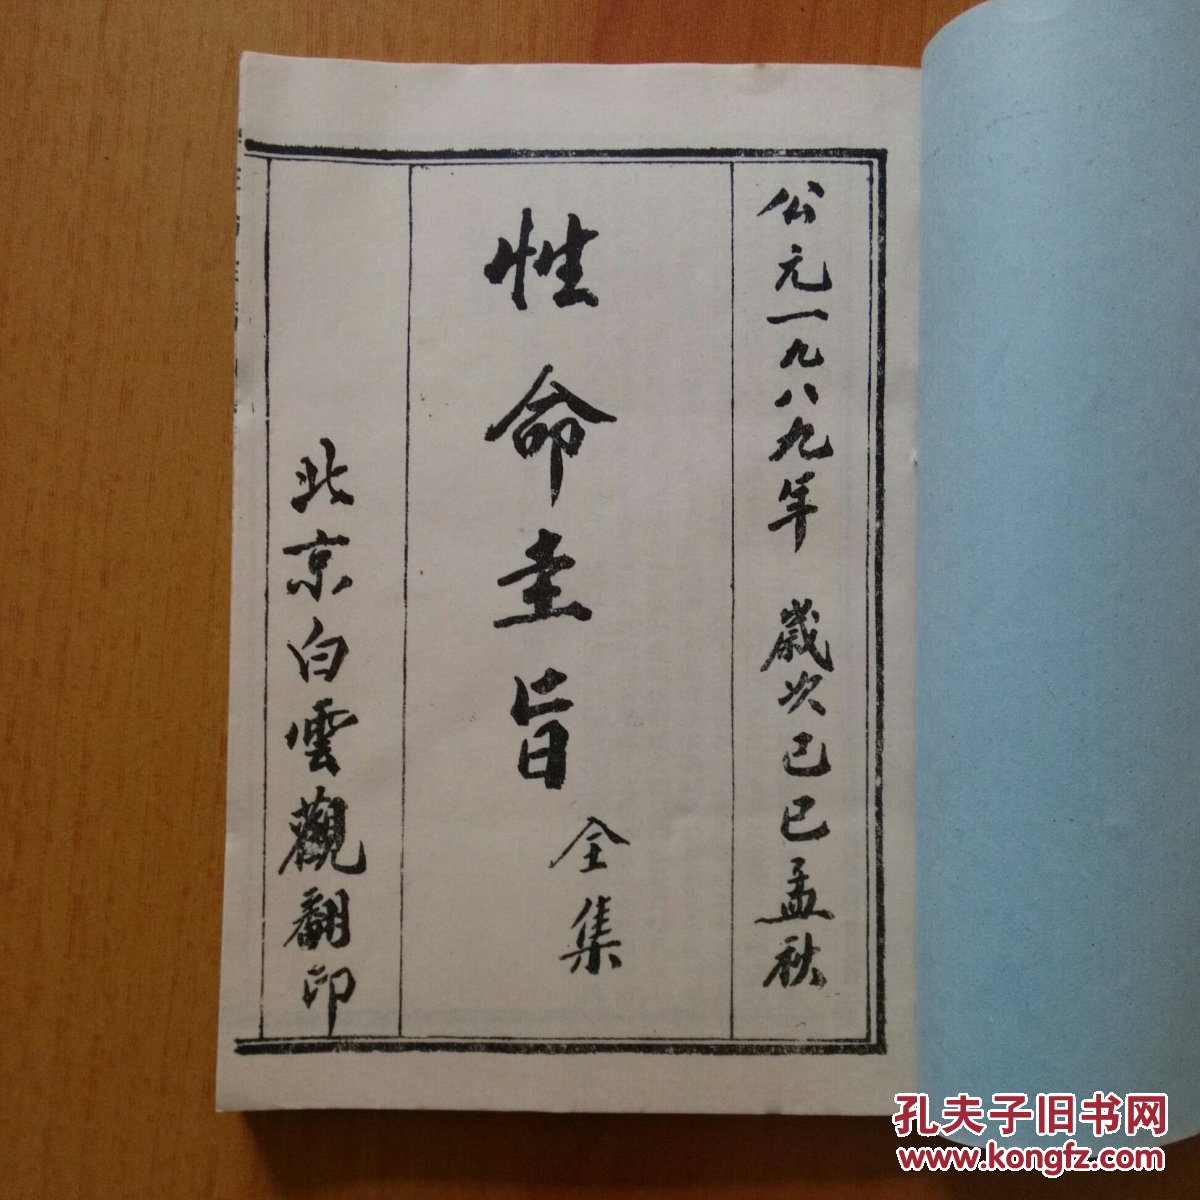 公元一九八九年 歲次己巳孟秋
性命圭旨
全集
北京白雲觀翻印
孔夫子旧书网
www.kongfz.com